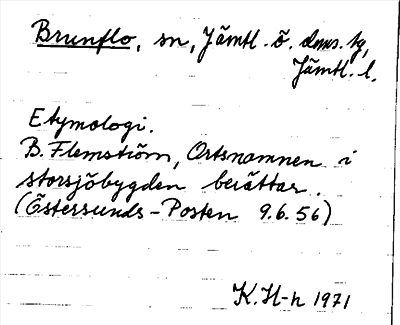 Brunflo, sn, Jämtl. ö. doms. tg,
Jämtl. l.
Etymologi.
B. Flemström, Ortsnamnen i
storsjöbygden berättar.
(Östersunds-Posten 9.6.56)
K. H-n 1971